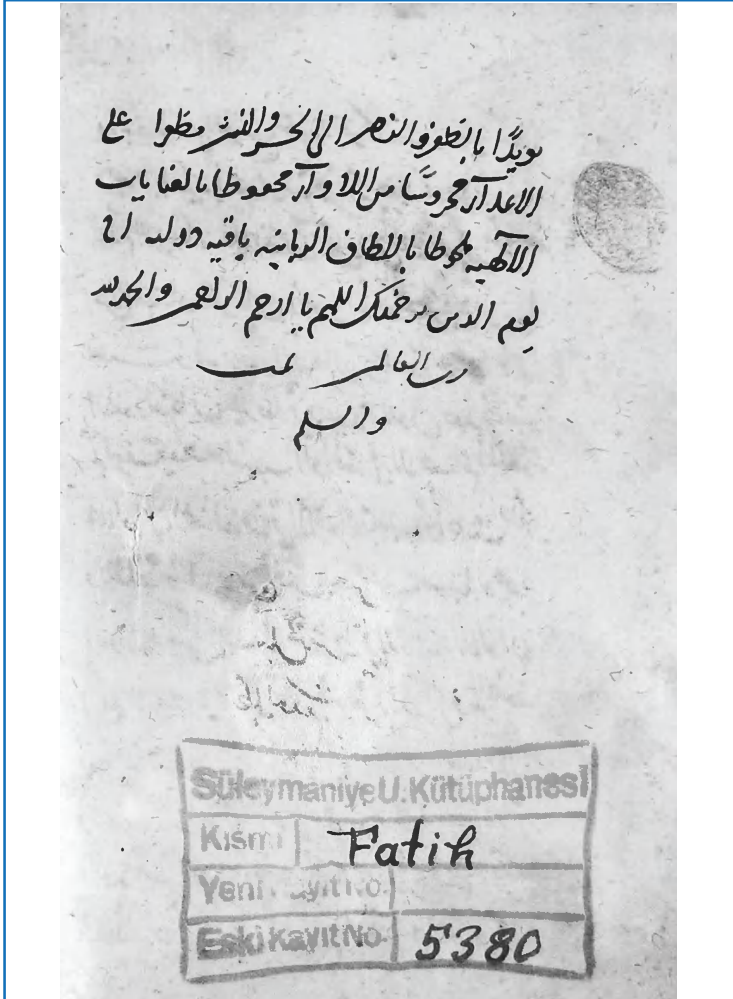 مويدًا بالظفر والنصر الى الحشر والنشر مظفرا على
الاعدآء محروسًا من الاسوآء محفوظا بالعنايات
الآلهيه ملحوظا بالالطاف الربانيه باقيه دولته الى
يوم الدين برحمتك اللهم يا ارحم الراحمين والحمد لله
رب العالمين تمت
والسلم
Süleymaniye U. Kütüphanesi
Kısmı Fatih
Yeni Kayıt No.
Eski Kayıt No. 5380